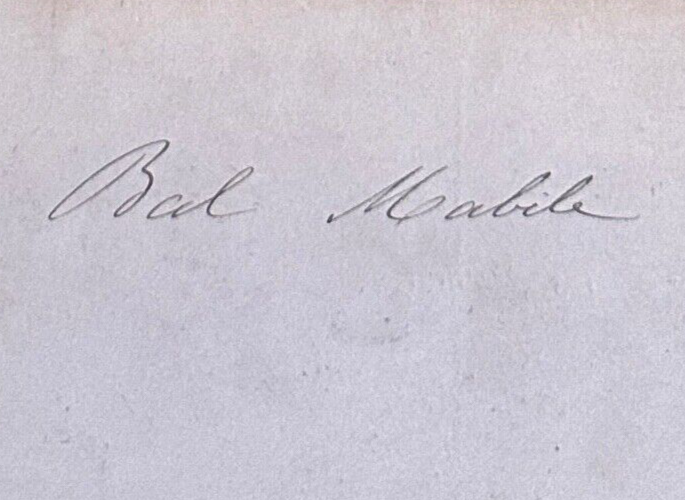 Bal Mabile